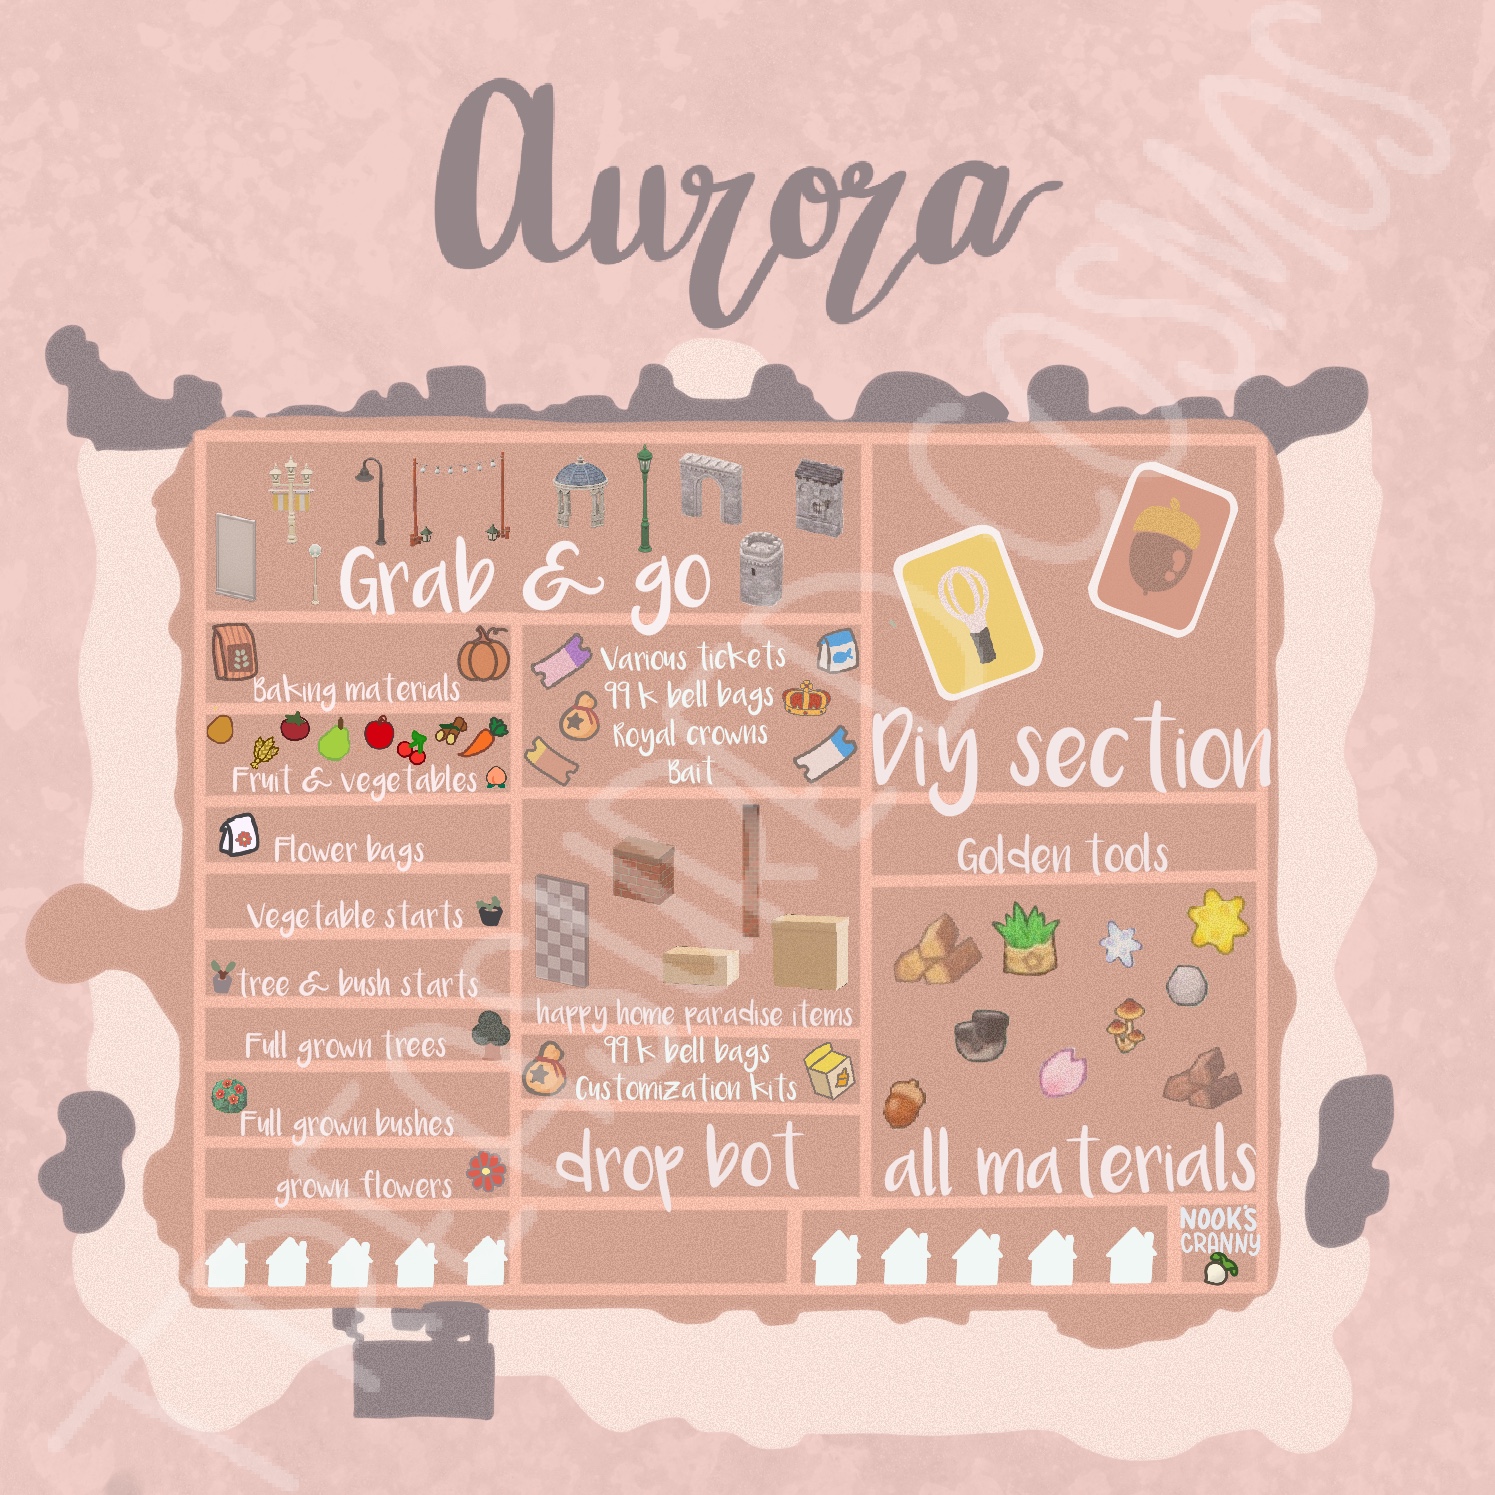 Aurora
Grab & go
Baking materials
Fruit & vegetables
Flower bags
Vegetable starts
tree & bush starts
Full grown trees
Full grown bushes
grown flowers
Various tickets
99k bell bags
Royal crowns
Bait
happy home paradise items
99k bell bags
Customization kits
drop bot
Diy section
Golden tools
all materials
NOOK'S
CRANNY
COSMOS